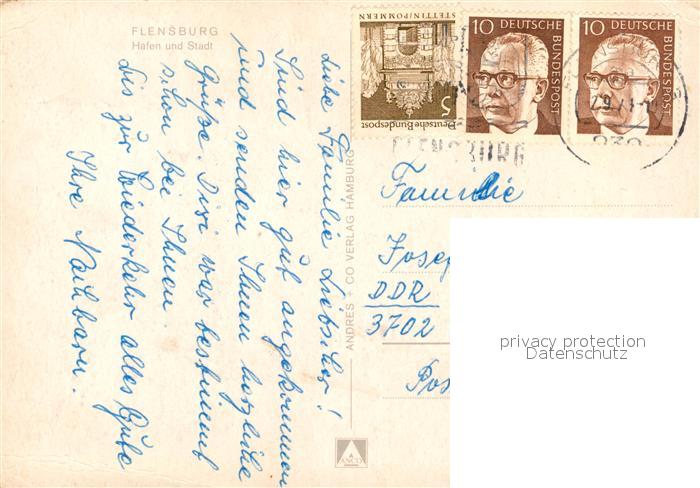 FLENSBURG
Hafen und Stadt
Liebe Familie Liebscher!
Sind hier gut angekommen
und senden Ihnen herzliche
Grüße. Dixi war bestimmt
schon bei Ihnen.
Bis zur Wiederkehr alles Gute
Ihre Nachbarn.
ANDRES + CO VERLAG HAMBURG
ANCO
STETTIN/POMMERN
5
Deutsche Bundespost
10
DEUTSCHE BUNDESPOST
10
DEUTSCHE BUNDESPOST
FLENSBURG
Familie
Josep
DDR
3702
privacy protection
Datenschutz